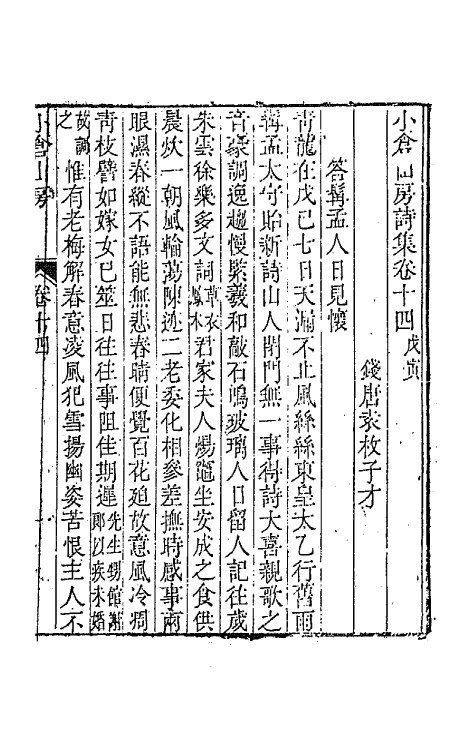 小倉山房詩集卷十四 戊寅
錢唐袁枚子才
答髯孟人日見懷
青龍在戊巳七日天漏不止風絲絲東皇太乙行舊雨
髯孟太守貽新詩山人閉門無一事得詩大喜親歌之
音豪調逸趨慢緊羲和敲石鳴玻璃人日留人記往歲
朱雲徐樂多文詞 草衣 君家夫人煬竈坐安成之食供
晨炊一朝風輪蕩陳迹二老委化相參差撫時感事兩
眼濕春縱不語能無悲春晴便覺百花廹故意風冷凋
靑枝譬如嫁女巳筮日往往事阻佳期遲 先生甥館 郎以疾未婚
故調之 惟有老梅解春意凌風犯雪揚幽姿苦恨主人不
小倉山房 卷十四 一